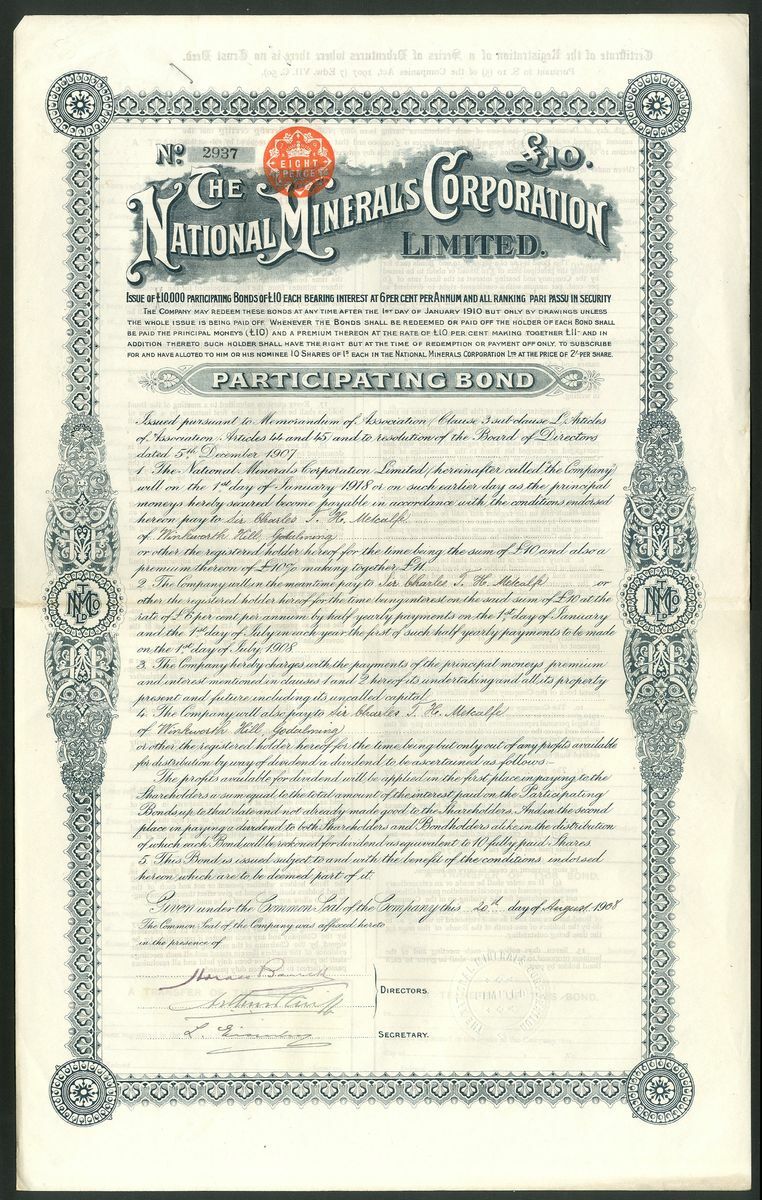 No. 2937
EIGHT
PENCE
£10.
THE
NATIONAL MINERALS CORPORATION
LIMITED.
ISSUE OF £10,000 PARTICIPATING BONDS OF £10 EACH BEARING INTEREST AT 6 PER CENT PER ANNUM AND ALL RANKING PARI PASSU IN SECURITY
THE COMPANY MAY REDEEM THESE BONDS AT ANY TIME AFTER THE 1ST DAY OF JANUARY 1910 BUT ONLY BY DRAWINGS UNLESS
THE WHOLE ISSUE IS BEING PAID OFF. WHENEVER THE BONDS SHALL BE REDEEMED OR PAID OFF THE HOLDER OF EACH BOND SHALL
BE PAID THE PRINCIPAL MONEYS (£10) AND A PREMIUM THEREON AT THE RATE OF £10 PER CENT MAKING TOGETHER £11 AND IN
ADDITION THERETO SUCH HOLDER SHALL HAVE THE RIGHT BUT AT THE TIME OF REDEMPTION OR PAYMENT OFF ONLY, TO SUBSCRIBE
FOR AND HAVE ALLOTED TO HIM OR HIS NOMINEE 10 SHARES OF 1s EACH IN THE NATIONAL MINERALS CORPORATION LTD AT THE PRICE OF 2/- PER SHARE.
PARTICIPATING BOND
Issued pursuant to Memorandum of Association, Clause 3 sub-clause L, Articles
of Association, Articles 44 and 45, and to resolution of the Board of Directors
dated 5th December 1907.
1. The National Minerals Corporation Limited (hereinafter called "the Company")
will on the 1st day of January 1918 or on such earlier day as the principal
moneys hereby secured become payable in accordance with the conditions endorsed
hereon pay to Sir Charles T. H. Metcalfe
of Winkworth Hill, Godalming
or other the registered holder hereof for the time being the sum of £10 and also a
premium thereon of £10% making together £11.
2. The Company will in the meantime pay to Sir Charles T. H. Metcalfe or
other the registered holder hereof for the time being interest on the said sum of £10 at the
rate of £6 per cent per annum by half yearly payments on the 1st day of January
and the 1st day of July in each year the first of such half yearly payments to be made
on the 1st day of July 1908.
3. The Company hereby charges with the payments of the principal moneys premium
and interest mentioned in clauses 1 and 2 hereof its undertaking and all its property
present and future including its uncalled capital.
4. The Company will also pay to Sir Charles T. H. Metcalfe
of Winkworth Hill Godalming
or other the registered holder hereof for the time being but only out of any profits available
for distribution by way of dividend a dividend to be ascertained as follows:-
The profits available for dividend will be applied in the first place in paying to the
Shareholders a sum equal to the total amount of the interest paid on the Participating
Bonds up to that date and not already made good to the Shareholders. And in the second
place in paying a dividend to both Shareholders and Bondholders alike in the distribution
of which each Bond will be reckoned for dividend as equivalent to 10 fully paid Shares.
5. This Bond is issued subject to and with the benefit of the conditions indorsed
hereon which are to be deemed part of it.
Given under the Common Seal of the Company this 20th day of August 1908
The Common Seal of the Company was affixed hereto
in the presence of
DIRECTORS.
SECRETARY.